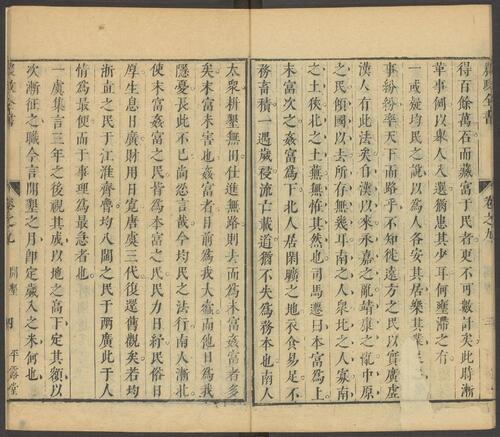 農政全書
卷之九
三
得百餘萬石而藏富于民者更不可數計矣此時漸
華事例以舉人入選猶患其少耳何壅滯之有
一或疑均民之說以為人各安其居樂其業
事紛紛率天下而路乎不知徙遠方之民以實廣虛
漢人有此法矣自漢以來永嘉之亂靖康之亂中原
之民傾國以去所存無幾耳南之人衆北之人寡南
之土狹北之土蕪無惟其然也司馬遷曰本富為上
末富次之姦富為下北人居閒曠之地衣食易足不
務畜積一遇歲祲流亡載道猶不失為務本也南人
太衆耕墾無田仕進無路則去而為末富姦富者多
矣末富未害也姦富者目前為我大蠹而他日為我
隱憂長此不已尚忍言哉今均民之法行南人漸北
使末富姦富之民皆為本富之民民力日紓民俗日
厚生息日廣財用日寛唐虞三代復還舊觀矣若均
浙直之民于江淮齊魯均八閩之民于兩廣此于人
情為最便而于事理為最急者也
一虞集言三年之後視其成以地之高下定其額以
次漸征之職今言開墾之月卽定歲入之米何也
農政全書
卷之九
開墾
四
平露堂